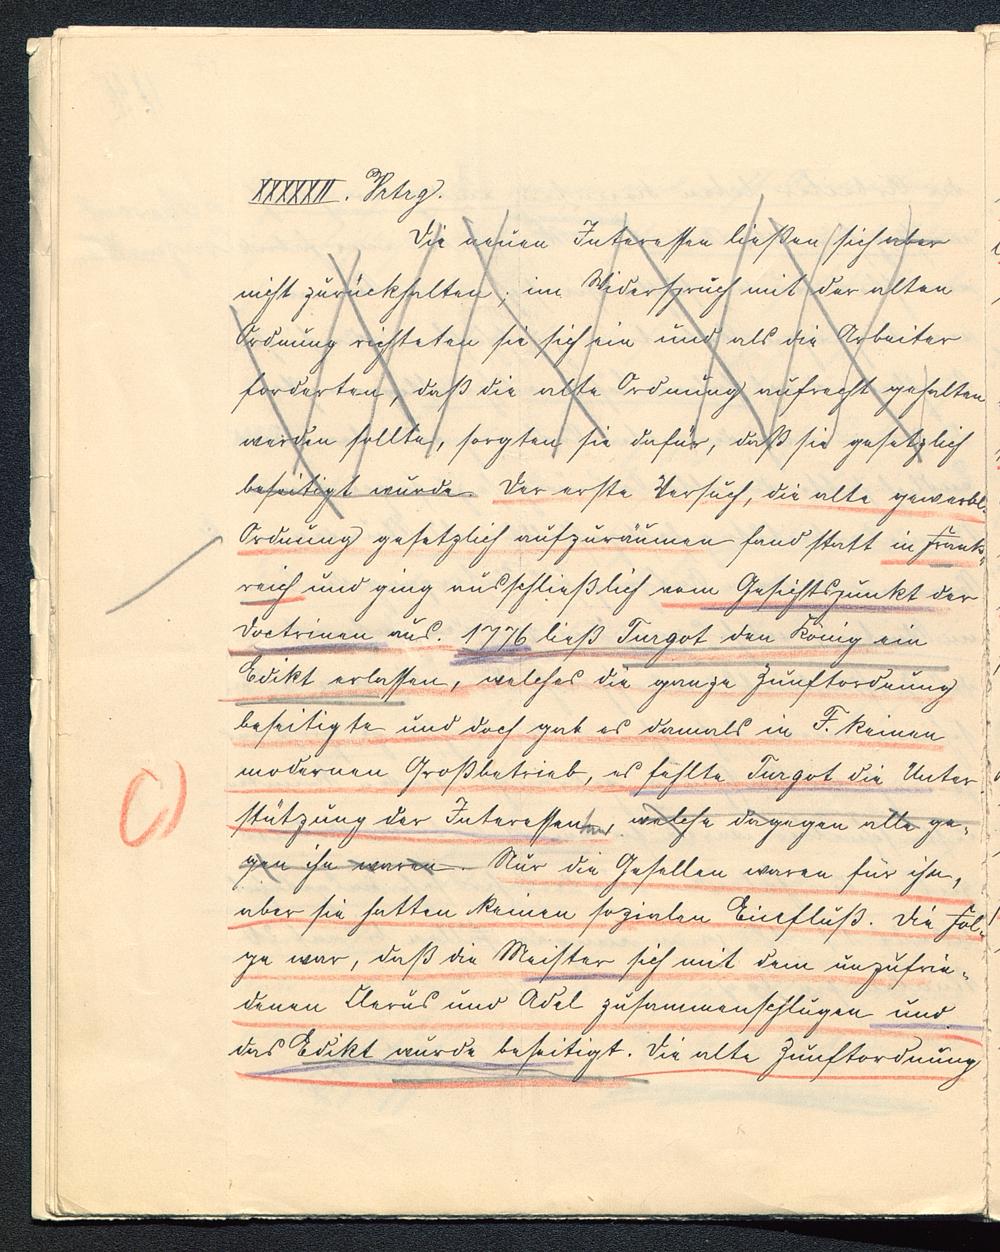 XXXXXII. Vrtrg.
Die neuen Interessen ließen sich aber
nicht zurückhalten; im Widerspruch mit der alten
Ordnung richteten sie sich ein und als die Arbeiter
forderten, daß die alte Ordnung aufrecht gehalten
werden sollte, sorgten sie dafür, daß sie gesetzlich
beseitigt wurde. Der erste Versuch, die alte gewerbl.
Ordnung gesetzlich aufzuräumen fand statt in Frank-
reich und ging ausschließlich vom Gesichtspunkt der
Doctrinen aus. 1776 ließ Turgot den König ein
Edikt erlassen, welches die ganze Zunftordnung
beseitigte und doch gab es damals in F. keinen
modernen Großbetrieb, es fehlte Turgot die Unter
stützung der Interessenten welche dagegen alle ge-
gen ihn waren. Nur die Gesellen waren für ihn,
aber sie hatten keinen sozialen Einfluß. Die Fol-
ge war, daß die Meister sich mit dem unzufrie-
denen Clerus und Adel zusammenschlugen und
das Edikt wurde beseitigt. Die alte Zunftordnung
C)